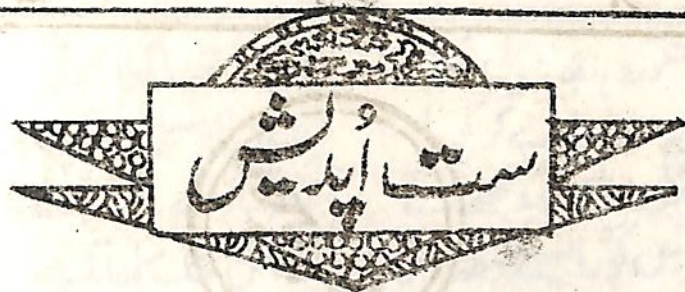 ست اُپدیش